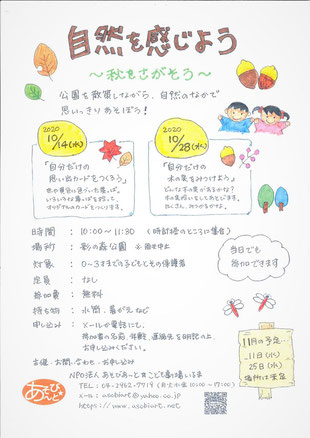 自然を感じよう
～秋をさがそう～
公園を散策しながら、自然のなかで
思いっきりあそぼう！
2020
10/14(水)
「自分だけの
思い出カードをつくろう」
2020
10/28(水)
「自分だけの
木の実をみつけよう」
どんな木の実があるかな？
日時 : 10:00～11:30 (時計塔のところに集合)
場所 : 彩の森公園 ※雨天中止
対象 : 0～3才までの子どもとその保護者
定員 : なし
参加費 : 無料
持ち物 : 水筒、着がえなど
申し込み : メールか電話にて、
参加者の名前、年齢、連絡先を明記の上、
お申し込みください。
当日でも
参加できます
主催・お問い合わせ・お申し込み
NPO法人 あそびあーと☆こども劇場いるま
メール : asobiart@yahoo.co.jp
https://www.asobiart.net
あそび
あーと
11月の予定…
11日(水)
25日(水)
場所は未定